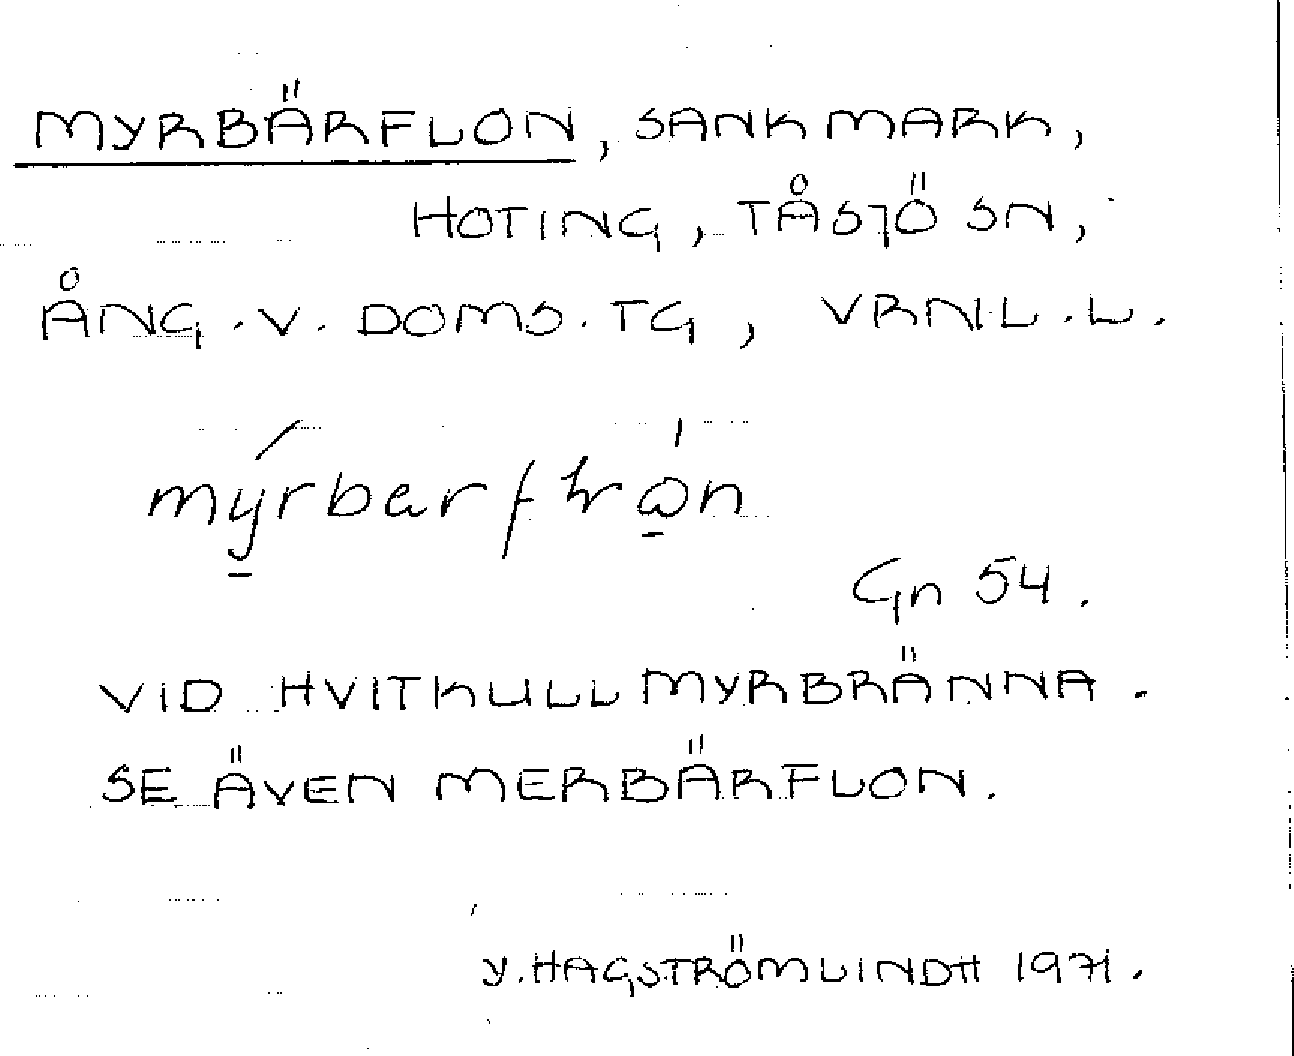 MYRBÄRFLON, SANKMARK,
HOTING, TÅSJÖ SN,
ÅNG.V. DOMS.TG, VRNL.L.
Gn 54.
VID HVITKULLMYRBRÄNNA.
SE ÄVEN MERBÄRFLON.
Y. HAGSTRÖMLINDH 1971.